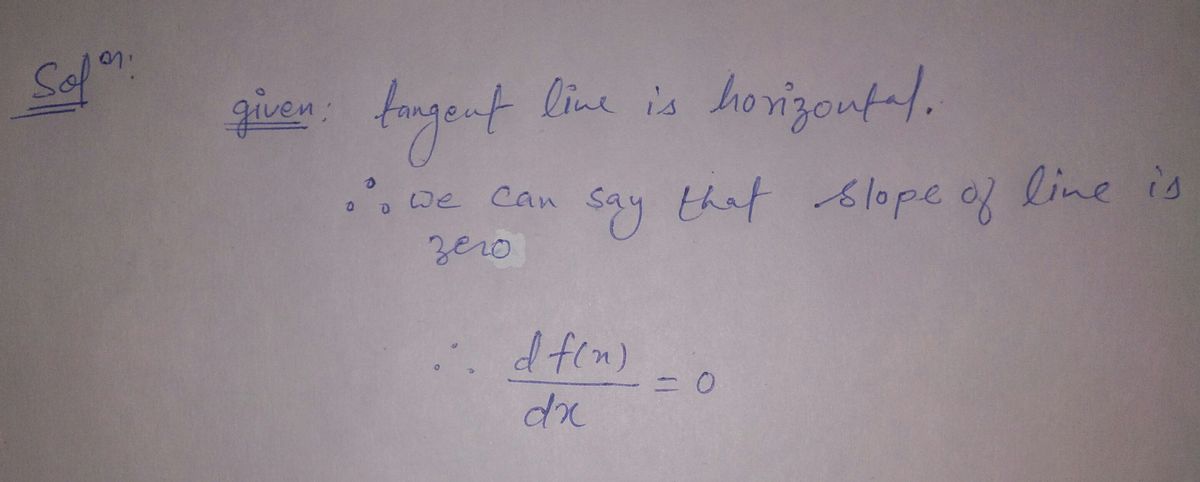 Solⁿ:
given: tangent line is horizontal.
∴ we can say that slope of line is
zero
∴ d f(x)
dx
= 0